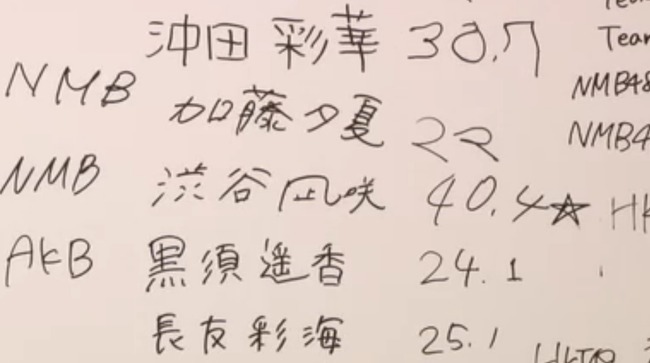 沖田彩華 30.7
NMB 加藤夕夏 22
NMB 渋谷凪咲 40.4☆
AKB 黒須遥香 24.1
長友彩海 25.1
Team
NMB48
NMB4
HK